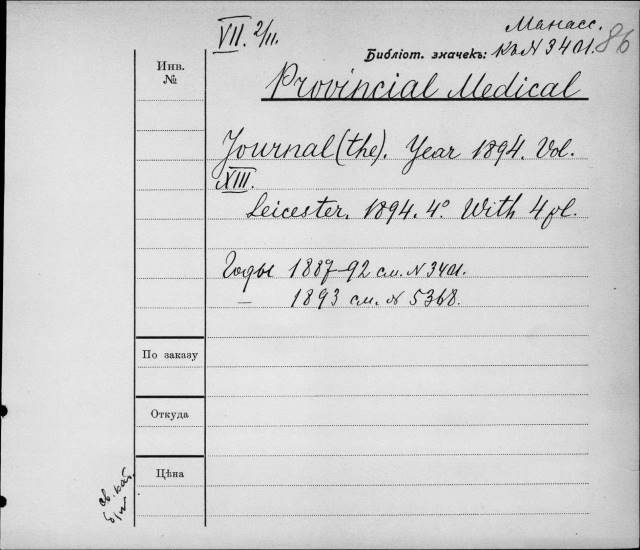 VII. 2/11.
Манасс.
Библіот. значекъ: Къ N 3401.
86
Инв.
№
Provincial Medical
Journal (the). Year 1894. Vol.
XIII.
Leicester. 1894. 4° With 4 pl.
Годы 1887-92 см. N 3401.
— 1893 см. N 5368.
По заказу
Откуда
Цѣна
св. кат.